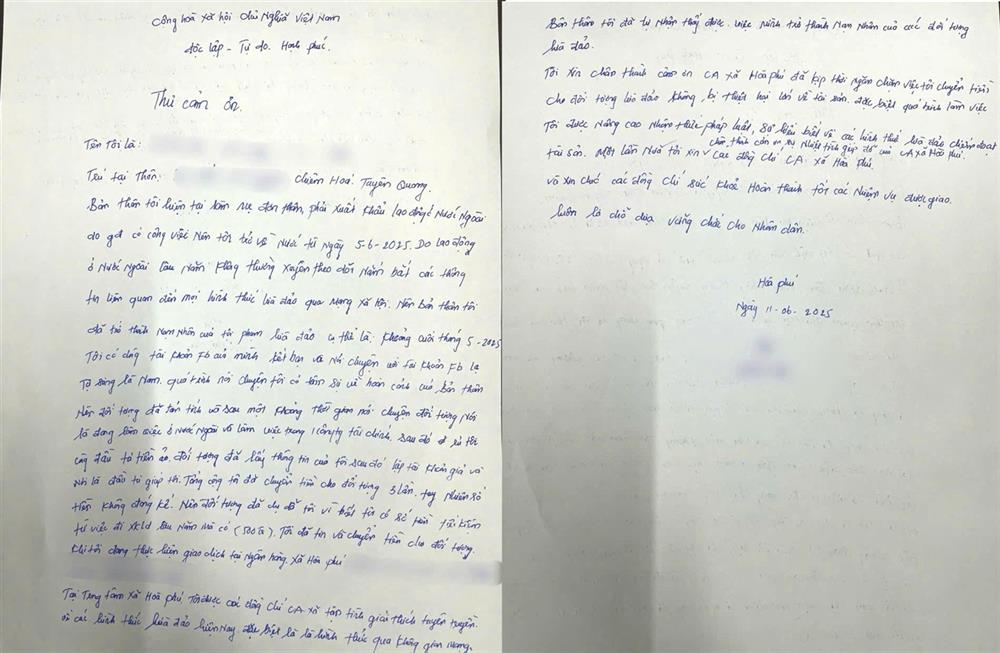 Cộng hoà xã hội chủ Nghĩa Việt Nam
độc lập - Tự do. Hạnh phúc.
Thư cảm ơn.
Tên Tôi là:
Trú tại Thôn: Chiêm Hoá, Tuyên Quang.
Bản thân tôi hiện tại làm mẹ đơn thân, phải xuất khẩu lao động ở Nước Ngoài
do gđ có công việc Nên tôi trở về Nước từ ngày 5-6-2025. Do lao động
ở Nước Ngoài lâu Năm không thường xuyên theo dõi Nắm bắt các thông
tin liên quan đến mọi hình thức lừa đảo qua mạng xã hội. Nên bản thân tôi
đã trở thành Nạn Nhân của tội phạm lừa đảo cụ thể là: khoảng cuối tháng 5-2025
Tôi có dùng tài khoản Fb của mình kết bạn và Nói chuyện với tài khoản Fb lạ
Tự xưng là Nam. quá trình nói chuyện tôi có tâm sự về hoàn cảnh của bản thân
Nên đối tượng đã tán tỉnh và sau một khoảng thời gian nói chuyện đối tượng Nói
là đang làm việc ở Nước Ngoài và làm việc trong 1 công ty tài chính, sau đó rủ tôi
cùng đầu tư tiền ảo. đối tượng đã lấy thông tin của tôi sau đó lập tài khoản giả và
nói là đầu tư giúp tôi. Tổng cộng tôi đã chuyển tiền cho đối tượng 3 lần. tuy nhiên số
tiền không đáng kể. Nên đối tượng đã dụ dỗ tôi vì biết tôi có số tiền tiết kiệm
từ việc đi XKLĐ lâu Năm mà có (500tr). Tôi đã tin và chuyển tiền cho đối tượng.
Khi tôi đang thực hiện giao dịch tại Ngân hàng. xã Hòa phú
Tại Trung tâm xã Hoà phú Tôi được các đồng chí CA xã tận tình giải thích tuyên truyền.
về các hình thức lừa đảo hiện nay đặc biệt là là hình thức qua không gian mạng.
Bản thân tôi đã tự Nhận thấy được. việc mình trở thành Nạn Nhân của các đối tượng
lừa đảo.
Tôi xin chân thành cảm ơn CA xã Hoà phú đã kịp thời ngăn chặn việc tôi chuyển tiền
cho đối tượng lừa đảo không bị thiệt hại lớn về tài sản. đặc biệt quá trình làm việc
Tôi được Nâng cao Nhận thức pháp luật, Sự hiểu biết về các hình thức lừa đảo chiếm đoạt
tài sản. Một lần Nữa tôi xin chân thành cảm ơn sự nhiệt tình giúp đỡ của CA xã Hoà phú. Các đồng chí CA xã Hòa phú
và xin chúc các đồng chí sức khoẻ Hoàn thành tốt các Nhiệm vụ được giao.
luôn là chỗ dựa vững chắc cho Nhân dân.
Hòa phú
Ngày 11-06-2025